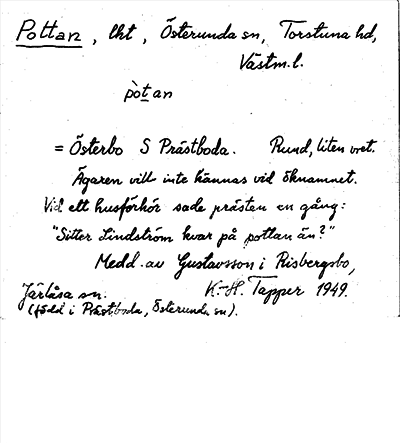 Pottan, lht, Österunda sn, Torstuna hd,
Västm. l.
pòtan
= Österbo S Prästboda. Rund, liten vret.
Ägaren vill inte kännas vid öknamnet.
Vid ett husförhör sade prästen en gång:
"Sitter Lindström kvar på pottan än?"
Medd. av Gustavsson i Risbergsbo,
Järlåsa sn. K.-H. Tapper 1949.
(född i Prästboda, Österunda sn).